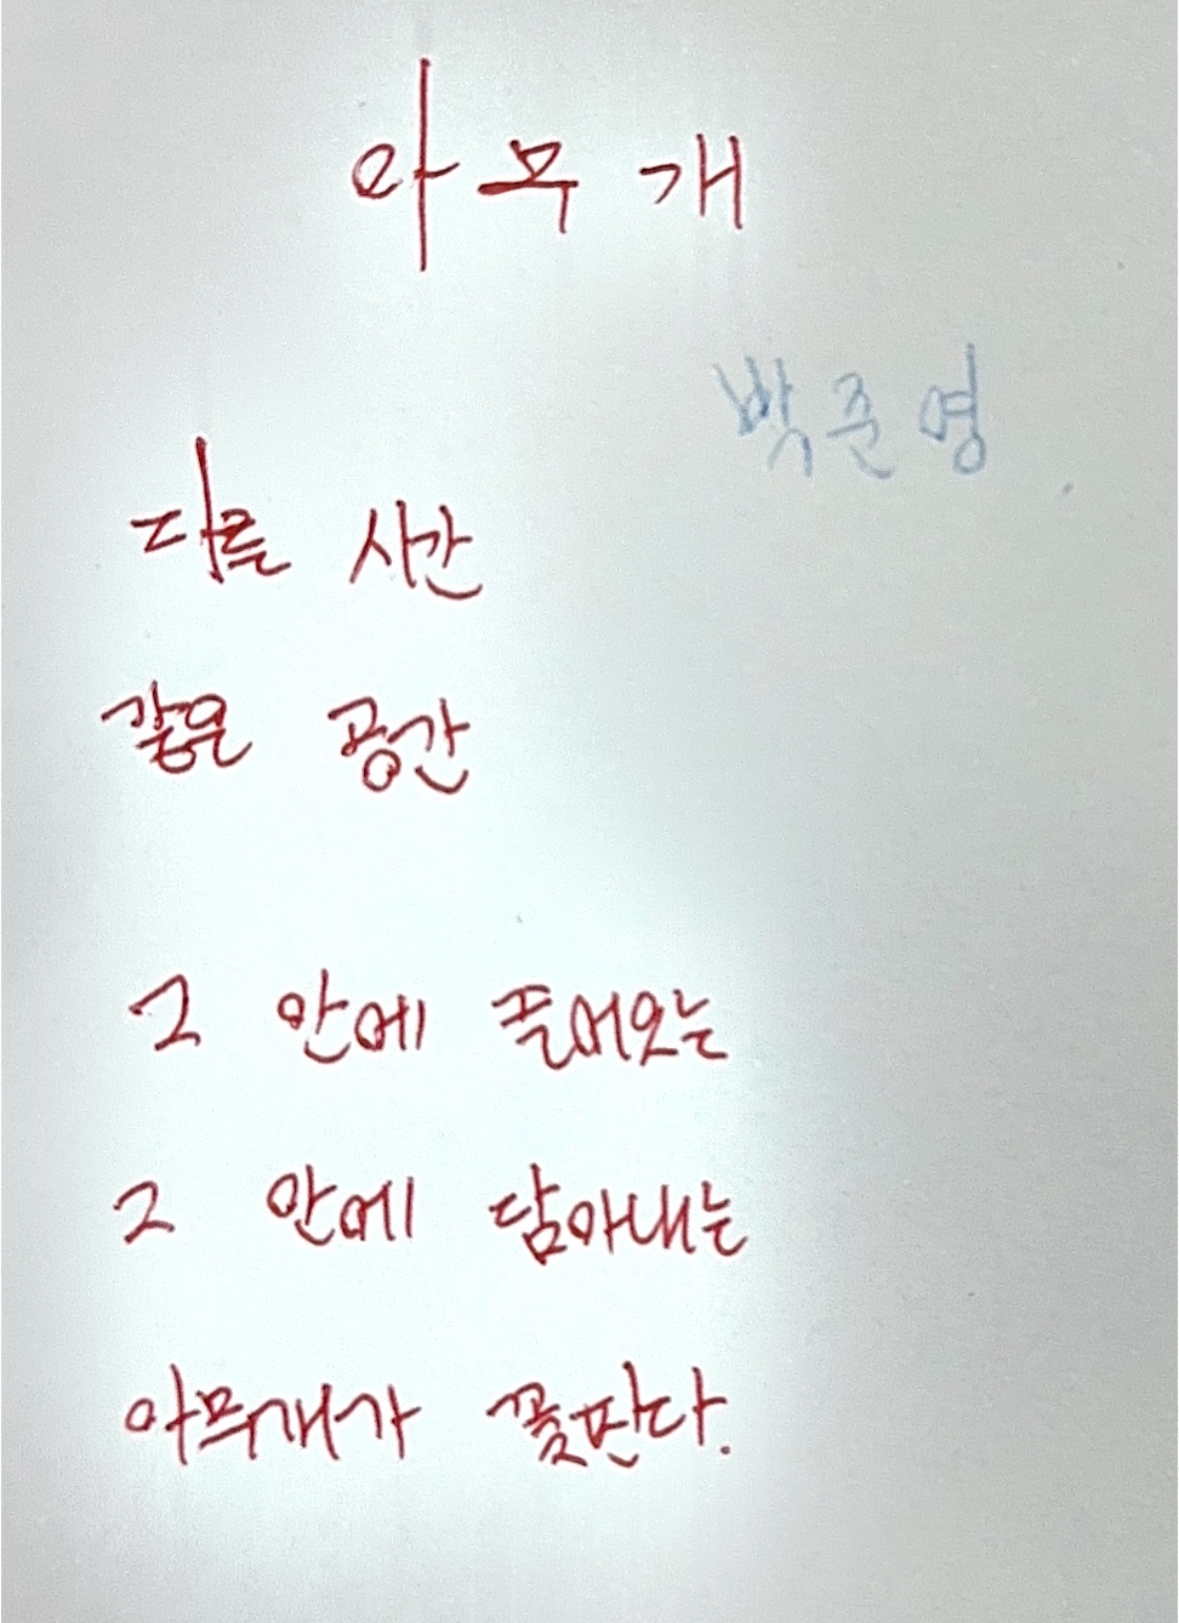 아무개
박준영
다른 시간
같은 공간
그 안에 들어오는
그 안에 담아내는
아무개가 꽃핀다.